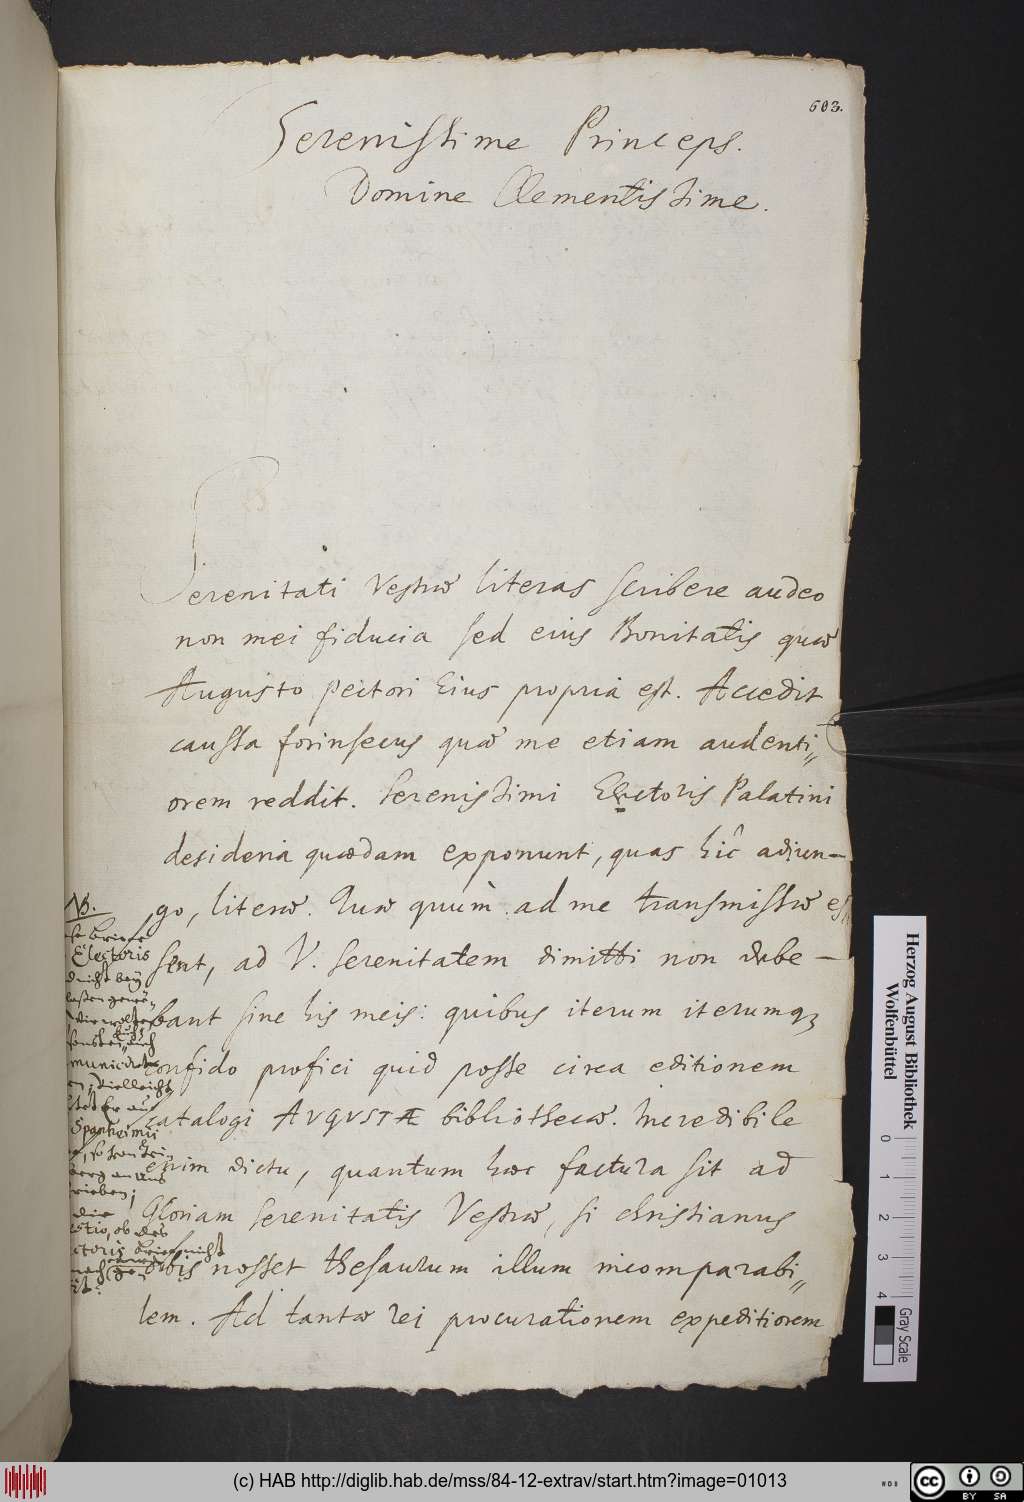 603.
Serenissime Princeps.
Domine Clementissime.
Serenitati Vestræ literas scribere audeo
non mei fiducia sed eius Bonitatis quæ
Augusto pectori Eius propria est. Accedit
caussa forinsecus quæ me etiam audenti〃
orem reddit. Serenissimi Electoris Palatini
desideria quædam exponunt, quas hîc adiun-
go, literæ. Quæ quum ad me transmissæ es〃
sent, ad V. serenitatem dimitti non debe-
bant sine his meis: quibus iterum iterumqꝫ
confido profici quid posse circa editionem
catalogi AVGVSTÆ bibliothecæ. Incredibile
enim dictu, quantum hæc factura sit ad
Gloriam serenitatis Vestræ, si christianus
orbis nosset thesaurum illum incomparabi〃
lem. Ad tantæ rei procurationem expeditiorem
NB.
Briefe
Electoris
nicht bey
vielleicht
Er auch
Spanheimii
an
die
ob des
Briefe nicht
Herzog August Bibliothek
Wolfenbüttel
0 1 2 3 4
Gray Scale
(c) HAB http://diglib.hab.de/mss/84-12-extrav/start.htm?image=01013
cc BY SA